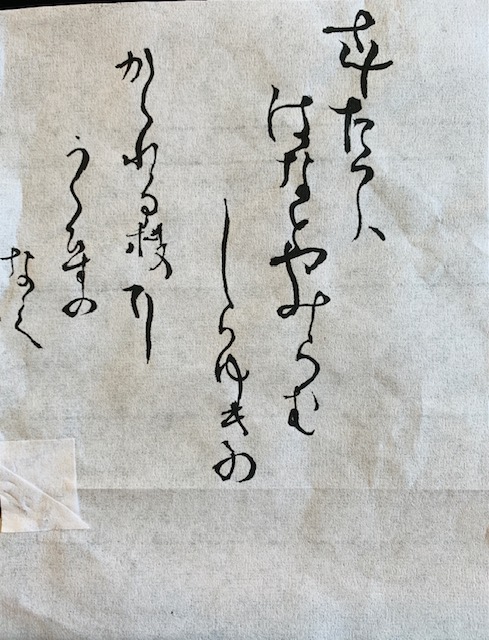 春たては
はなとやみらむ
しらゆきの
かゝれる枝に
うくひすの
なく